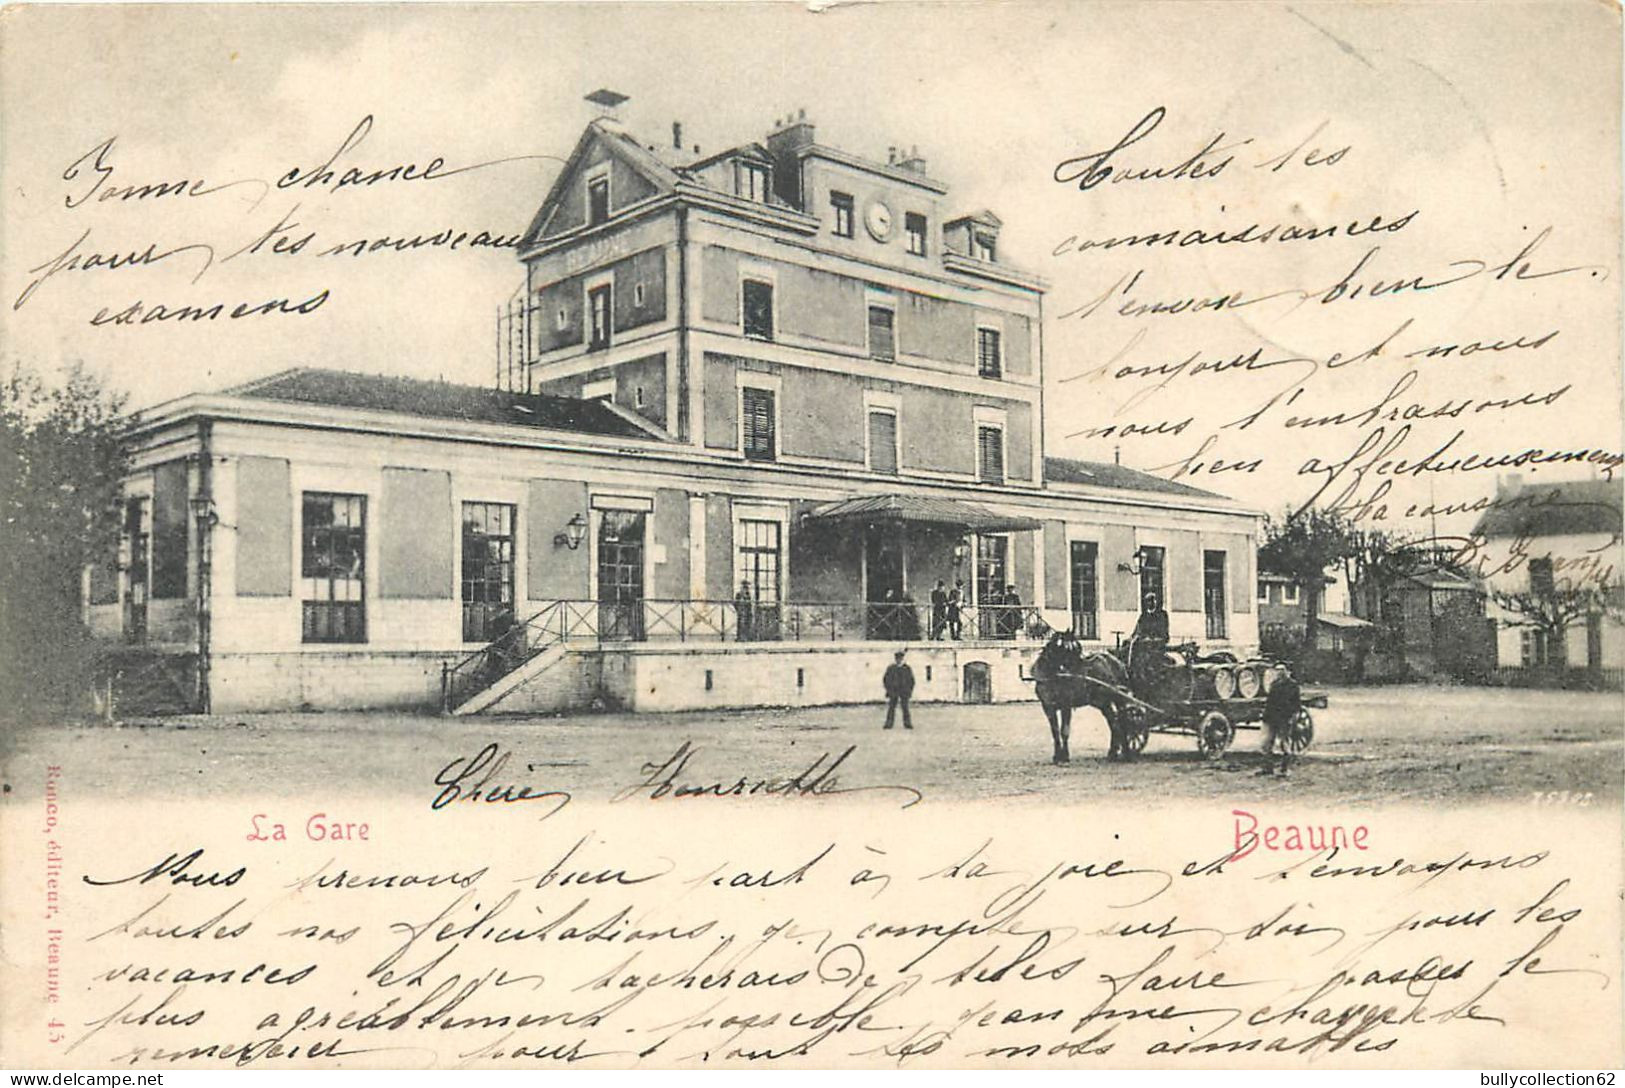 Bonne chance
pour tes nouveaux
examens
Toutes tes
connaissances
t'envoie bien le
bonjour et nous
nous t'embrassons
bien affectueusement
Ta cousine
BEAUNE
Chère Henriette
La Gare
Beaune
Ronco, éditeur, Beaune 45
Nous prenons bien part à ta joie et t'envoyons
toutes nos félicitations. je compte sur toi pour les
vacances et je tacherais de te les faire passer le
plus agréablement possible. Jean me charge de te
remercier pour tout tes mots aimables
bullycollection62